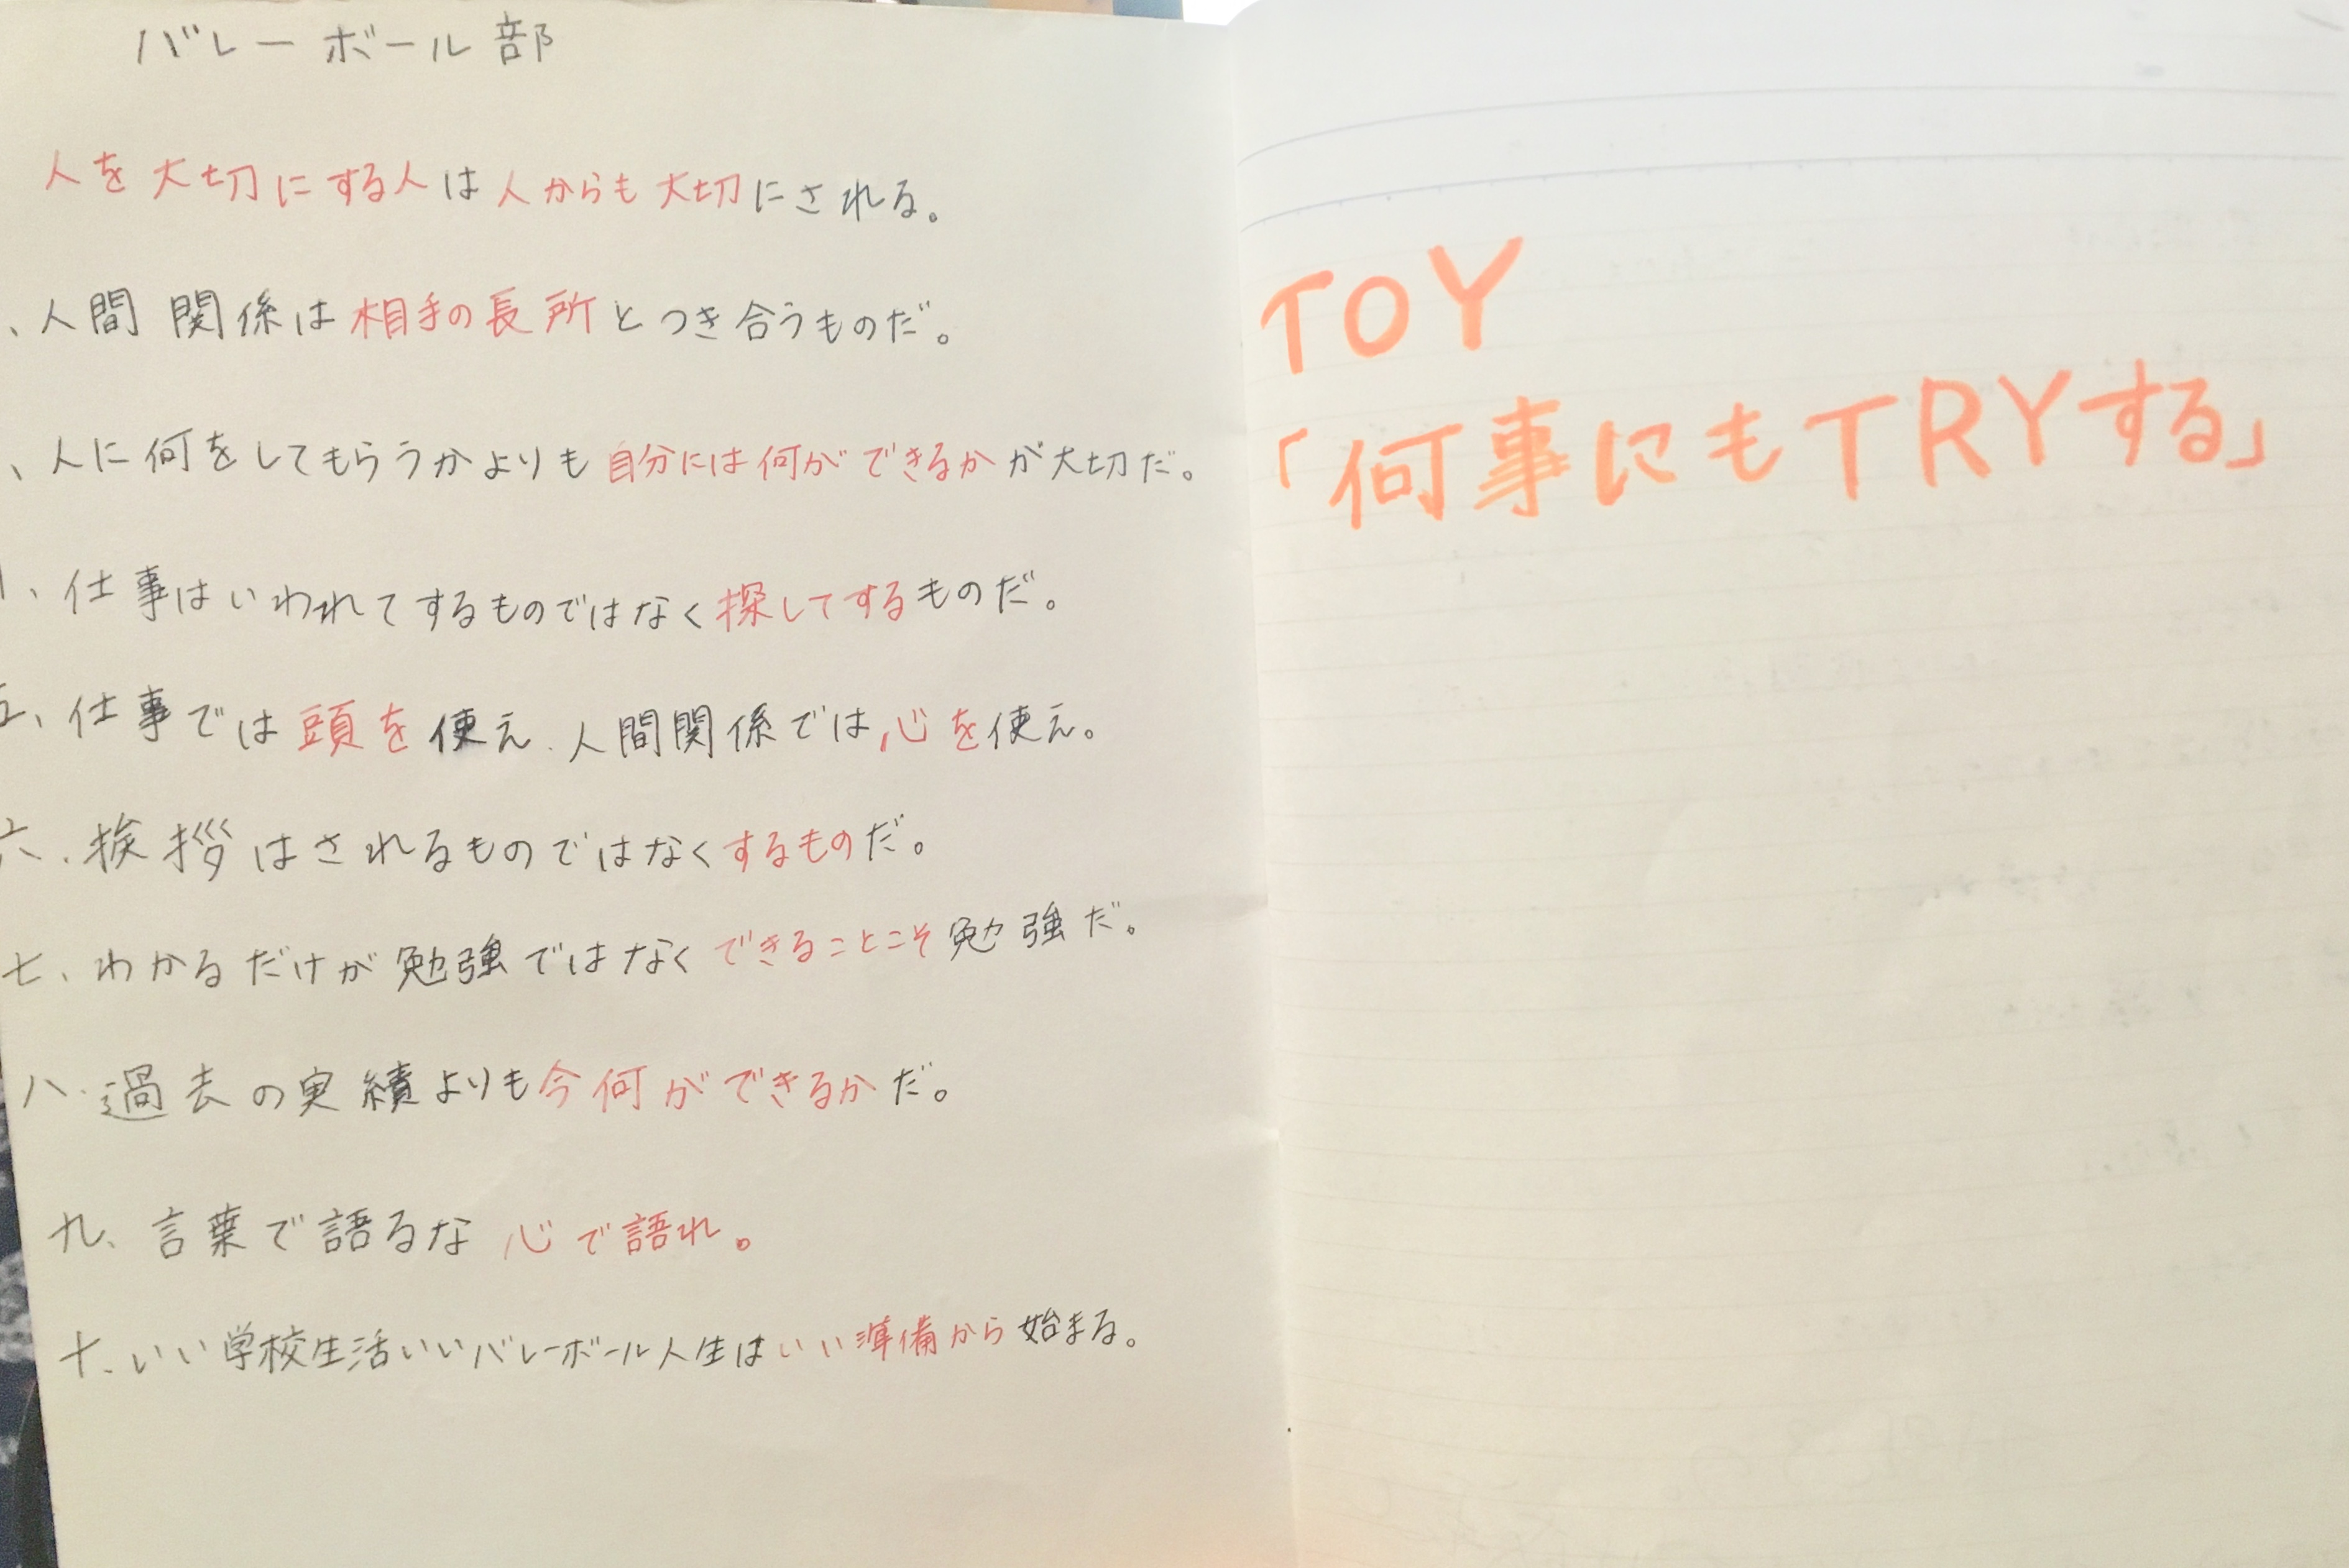 バレーボール部
人を大切にする人は人からも大切にされる。
、人間関係は相手の長所とつき合うものだ。
、人に何をしてもらうかよりも自分には何ができるかが大切だ。
、仕事はいわれてするものではなく探してするものだ。
五、仕事では頭を使え、人間関係では心を使え。
六、挨拶はされるものではなくするものだ。
七、わかるだけが勉強ではなくできることこそ勉強だ。
八、過去の実績よりも今何ができるかだ。
九、言葉で語るな 心で語れ。
十、いい学校生活いいバレーボール人生はいい準備から始まる。
TOY
「何事にもTRYする」